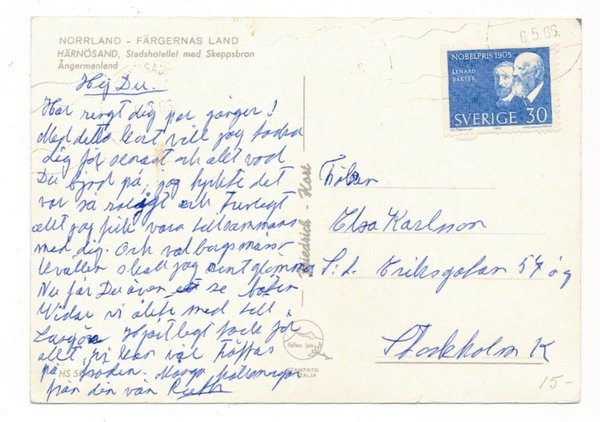 NORRLAND - FÄRGERNAS LAND
HÄRNÖSAND, Stadshotellet med Skeppsbron
Ångermanland
6.5.66.
NOBELPRIS 1905
LENARD
BAEYER
SVERIGE 30
Hej Du.
Har ringt dig par gånger!
Med detta kort vill jag tacka
dig för senast och allt vad
Du bjöd på, jag tyckte det
var så roligt och trevligt
att jag fick vara tillsammans
med dig. Och valborgsmäss-
kvällen skall jag sent glömma
Nu får Du även se
vi åkte med till
Hjärtligt tack för
allt, vi kan väl träffas
på Många hälsningar
från din vän Ruth
Friedrich - Hasse
Fröken
Elsa Karlsson
S:t Eriksgatan 57 ög
Stockholm K
Italiens fotó
STAMPATO
ITALIA
HS
15-